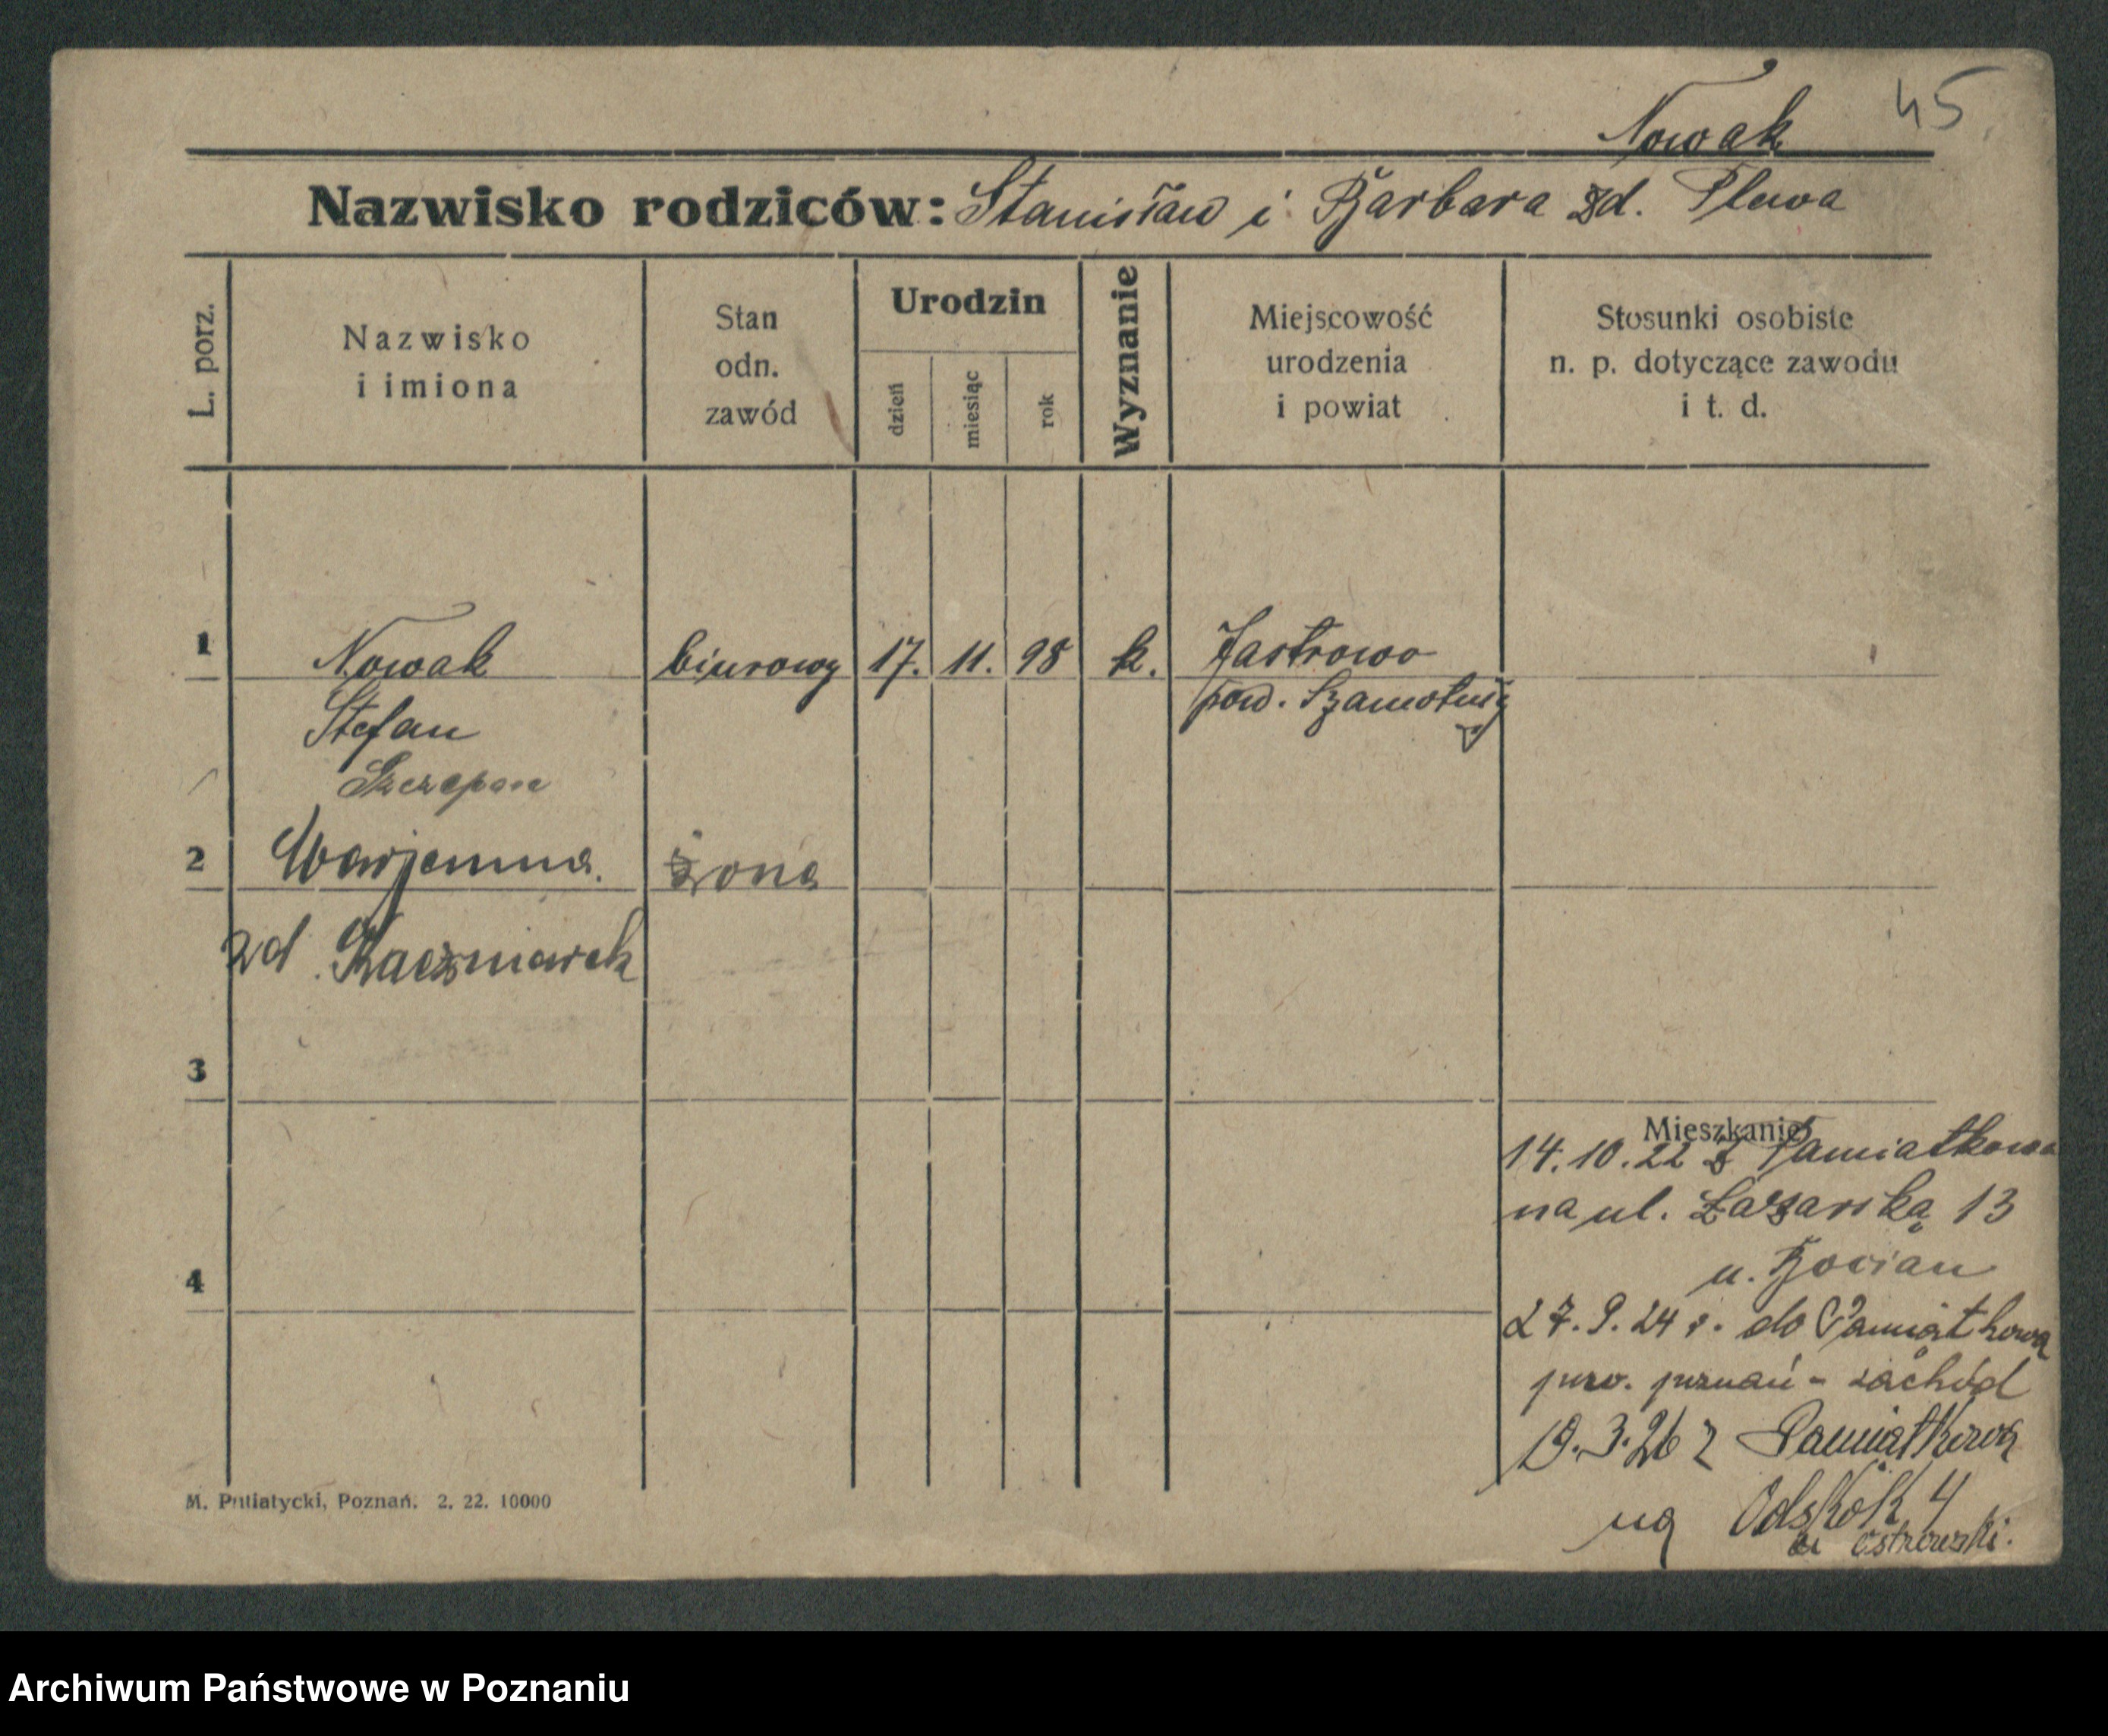 45
Nowak
Nazwisko rodziców: Stanisław i Barbara zd. Plewa
L. porz.
Nazwisko
i imiona
Stan
odn.
zawód
Urodzin
dzień
miesiąc
rok
Wyznanie
Miejscowość
urodzenia
i powiat
Stosunki osobiste
n. p. dotyczące zawodu
i t. d.
1 Nowak biurowy 17. 11. 98 k. Jastrowo
Stefan pow. Szamotuły
Szczepan
2 Marjanna. żona
zd. Kaczmarek
3
Mieszkanie
14.10.22 z Pamiatkowa
na ul. Łazarską 13
u. Bocian
4
27.9.24 r. do Pamiątkowa
pow. poznań - zachód
19.3.26 z Pamiątkowa
na Odskok 4
u Ostrowski.
M. Putiatycki, Poznań. 2. 22. 10000
Archiwum Państwowe w Poznaniu